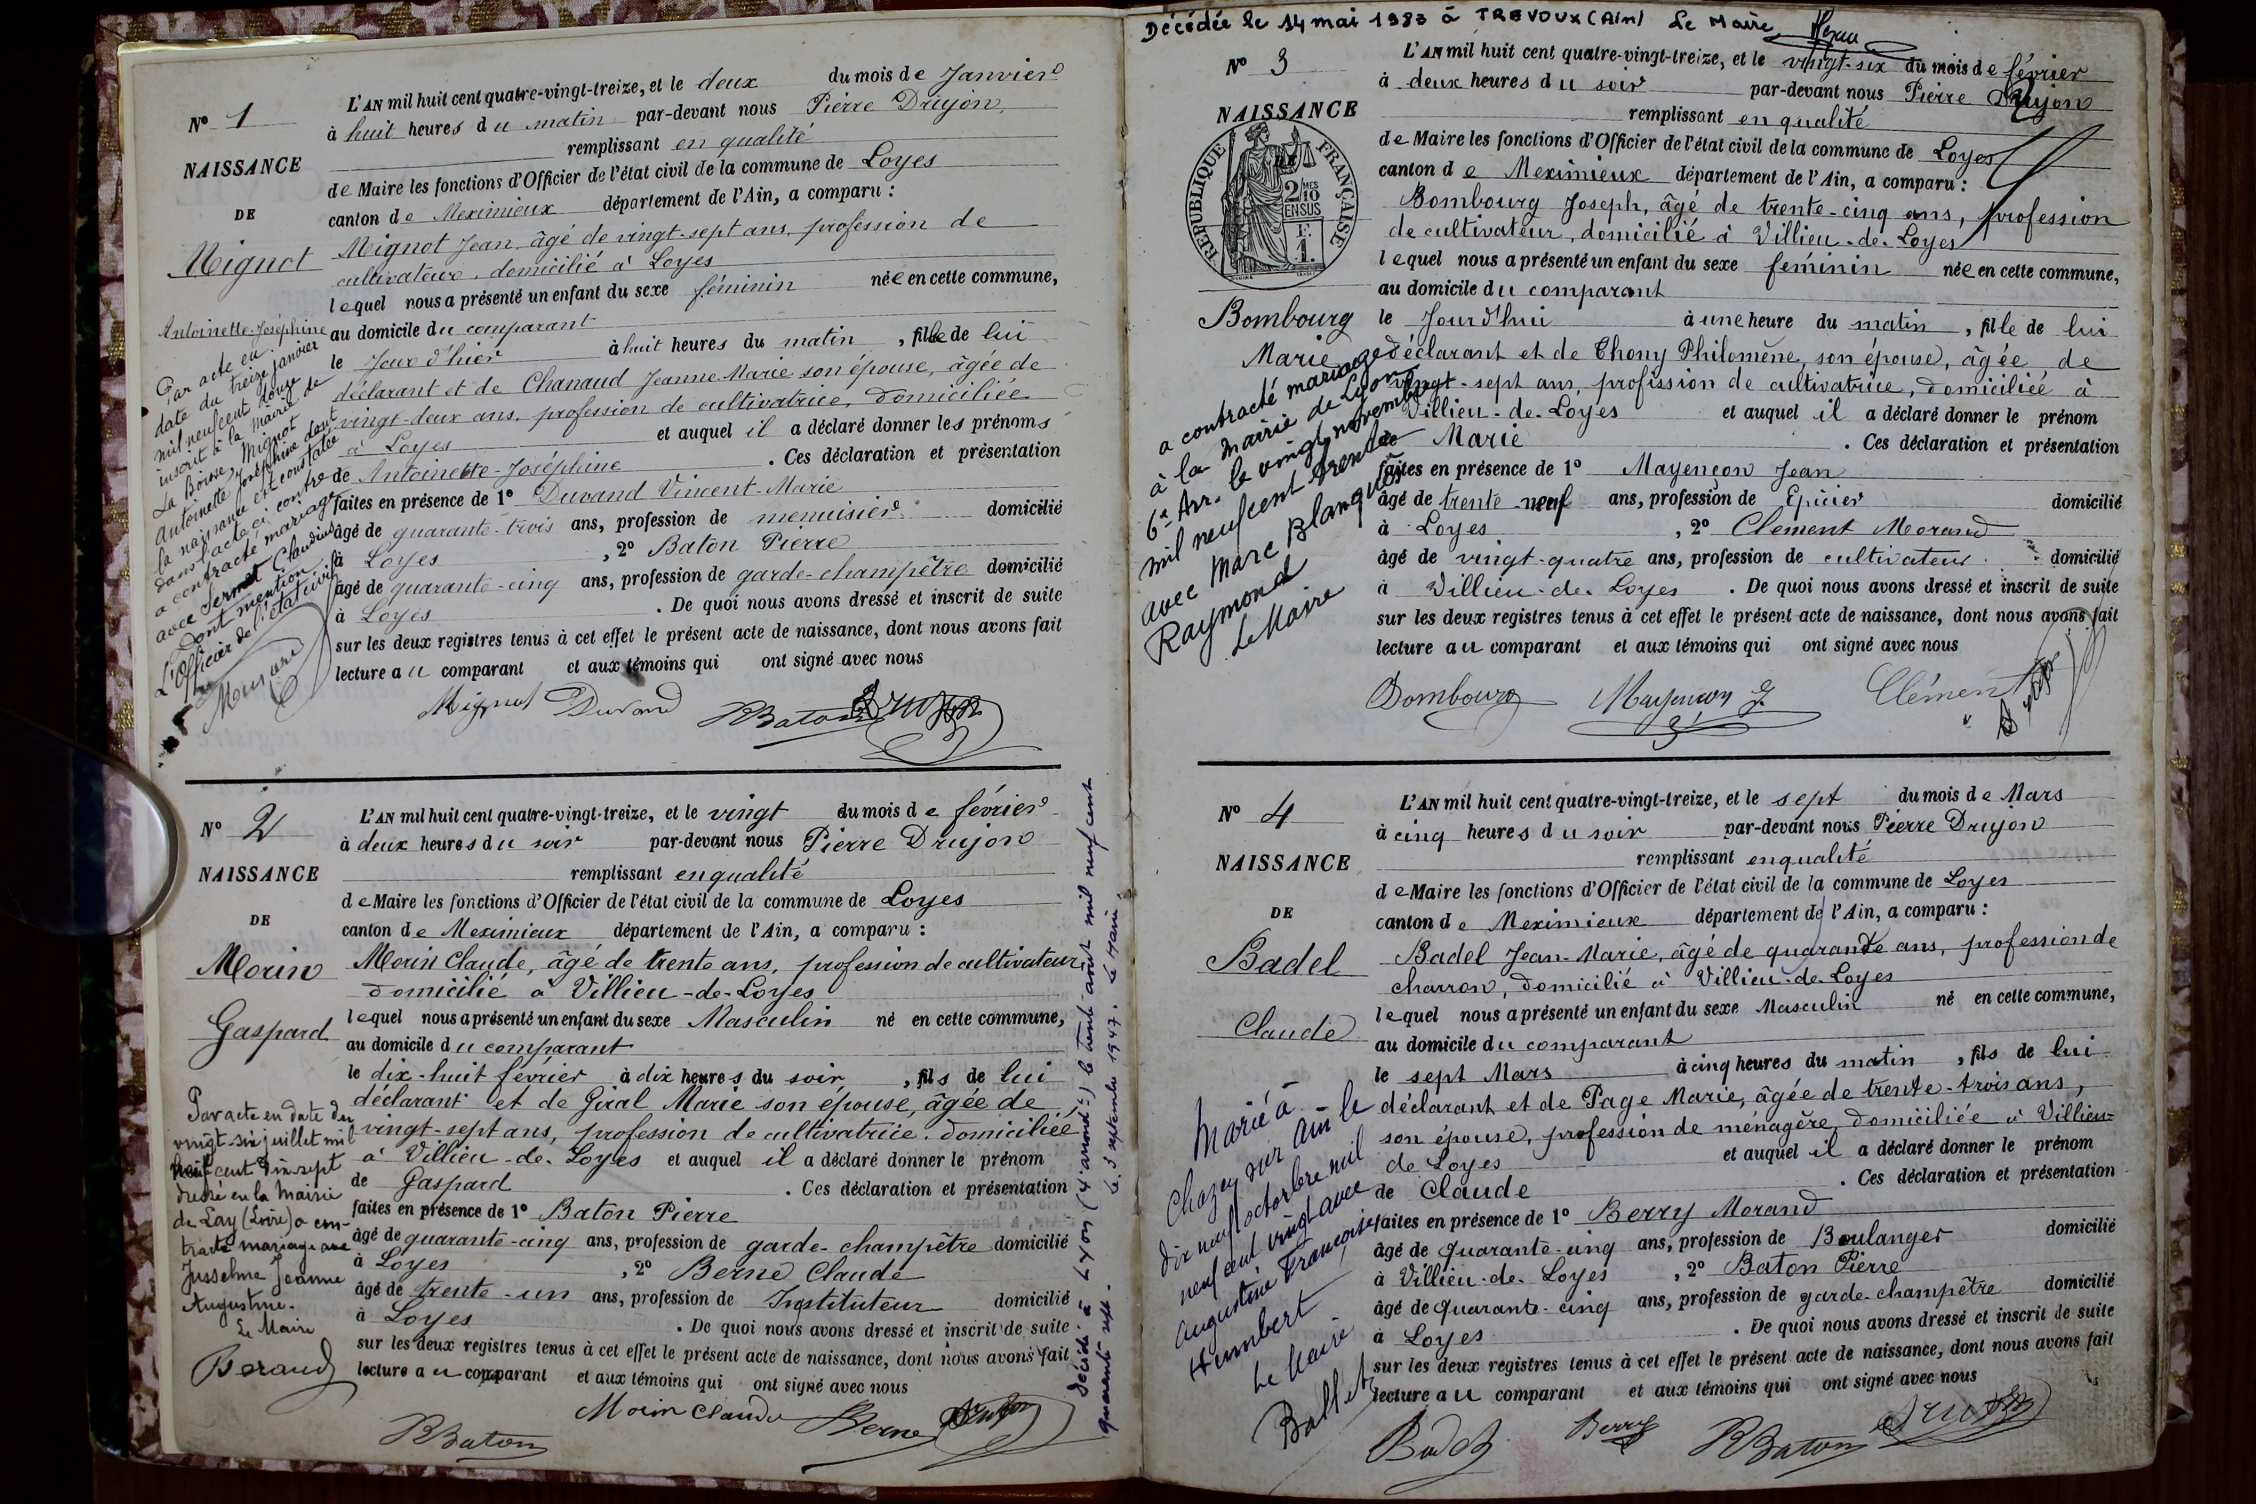 Nº 1
NAISSANCE
DE
Mignot
Antoinette-Joséphine
L'AN mil huit cent quatre-vingt-treize, et le deux du mois de Janvier
à huit heures du matin par-devant nous Pierre Drujon
remplissant en qualité
de Maire les fonctions d'Officier de l'état civil de la commune de Loyes
canton de Meximieux département de l'Ain, a comparu :
Mignot Jean âgé de vingt-sept ans, profession de
cultivateur, domicilié à Loyes
lequel nous a présenté un enfant du sexe féminin née en cette commune,
au domicile du comparant
le Jour d'hier à huit heures du matin, fille de lui
déclarant et de Chanaud Jeanne Marie son épouse, âgée de
vingt-deux ans, profession de cultivatrice, domiciliée
à Loyes et auquel il a déclaré donner les prénoms
de Antoinette-Joséphine. Ces déclaration et présentation
faites en présence de 1º Durand Vincent-Marie
âgé de quarante-trois ans, profession de menuisier domicilié
à Loyes, 2º Baton Pierre
âgé de quarante-cinq ans, profession de garde-champêtre domicilié
à Loyes. De quoi nous avons dressé et inscrit de suite
sur les deux registres tenus à cet effet le présent acte de naissance, dont nous avons fait
lecture au comparant et aux témoins qui ont signé avec nous
Mignot Durand PBaton Drujon
Par acte en
date du treize janvier
mil neuf cent douze
inscrit à la Mairie de
La Boisse, Mignot
Antoinette Joséphine dont
la naissance est constatée
dans l'acte ci-contre
a contracté mariage
avec Sermet Claudius
Dont mention
L'Officier de l'état civil
Nº 2
NAISSANCE
DE
Morin
Gaspard
L'AN mil huit cent quatre-vingt-treize, et le vingt du mois de février
à deux heures du soir par-devant nous Pierre Drujon
remplissant en qualité
de Maire les fonctions d'Officier de l'état civil de la commune de Loyes
canton de Meximieux département de l'Ain, a comparu :
Morin Claude, âgé de trente ans, profession de cultivateur
domicilié à Villieu-de-Loyes
lequel nous a présenté un enfant du sexe Masculin né en cette commune,
au domicile du comparant
le dix-huit février à dix heures du soir, fils de lui
déclarant et de Giral Marie son épouse, âgée de
vingt-sept ans, profession de cultivatrice, domiciliée
à Villieu-de-Loyes et auquel il a déclaré donner le prénom
de Gaspard. Ces déclaration et présentation
faites en présence de 1º Baton Pierre
âgé de quarante-cinq ans, profession de garde-champêtre domicilié
à Loyes, 2º Berne Claude
âgé de trente-un ans, profession de Instituteur domicilié
à Loyes. De quoi nous avons dressé et inscrit de suite
sur les deux registres tenus à cet effet le présent acte de naissance, dont nous avons fait
lecture au comparant et aux témoins qui ont signé avec nous
Morin Claude Berne Drujon
PBaton
Par acte en date du
vingt-six juillet mil
neuf cent dix sept
dressé en la Mairie
de Lay (Loire) a con-
tracté mariage avec
Jusselme Jeanne
Augustine.
Le Maire
Beraud
Décédé à Lyon (4e arrond.t) le trente août mil neuf cent
quarante sept. Le 3 septembre 1947. Le Maire,
Décédée le 14 mai 1983 à TREVOUX (Ain) Le Maire
Nº 3
NAISSANCE
REPUBLIQUE FRANÇAISE
2 MES 10
EN SUS
F.
1.
Bombourg
Marie
L'AN mil huit cent quatre-vingt-treize, et le vingt-six du mois de février
à deux heures du soir par-devant nous Pierre Drujon
remplissant en qualité
de Maire les fonctions d'Officier de l'état civil de la commune de Loyes
canton de Meximieux département de l'Ain, a comparu :
Bombourg Joseph, âgé de trente-cinq ans, profession
de cultivateur, domicilié à Villieu-de-Loyes
lequel nous a présenté un enfant du sexe féminin née en cette commune,
au domicile du comparant
le Jourd'hui à une heure du matin, fille de lui
déclarant et de Thony Philomène, son épouse, âgée de
vingt-sept ans, profission de cultivatrice, domiciliée à
Villieu-de-Loyes et auquel il a déclaré donner le prénom
de Marie. Ces déclaration et présentation
faites en présence de 1º Mayençon Jean
âgé de trente-neuf ans, profession de Epicier domicilié
à Loyes, 2º Clément Morand
âgé de vingt-quatre ans, profession de cultivateur domicilié
à Villieu-de-Loyes. De quoi nous avons dressé et inscrit de suite
sur les deux registres tenus à cet effet le présent acte de naissance, dont nous avons fait
lecture au comparant et aux témoins qui ont signé avec nous
Bombourg Mayençon J. Clément
a contracté mariage
à la mairie de Lyon
6e Arr. le vingt novembre
mil neuf cent trente
avec Marc Blanques
Raymond
Le Maire
Nº 4
NAISSANCE
DE
Badel
Claude
L'AN mil huit cent quatre-vingt-treize, et le sept du mois de Mars
à cinq heures du soir par-devant nous Pierre Drujon
remplissant en qualité
de Maire les fonctions d'Officier de l'état civil de la commune de Loyes
canton de Meximieux département de l'Ain, a comparu :
Badel Jean-Marie, âgé de quarante ans, profession de
charron, domicilié à Villieu-de-Loyes
lequel nous a présenté un enfant du sexe Masculin né en cette commune,
au domicile du comparant
le sept Mars à cinq heures du matin, fils de lui
déclarant et de Page Marie, âgée de trente-trois ans,
son épouse, profession de ménagère, domiciliée à Villieu-
de Loyes et auquel il a déclaré donner le prénom
de Claude. Ces déclaration et présentation
faites en présence de 1º Berry Morand
âgé de Quarante-cinq ans, profession de Boulanger domicilié
à Villieu-de-Loyes, 2º Baton Pierre
âgé de Quarante-cinq ans, profession de garde-champêtre domicilié
à Loyes. De quoi nous avons dressé et inscrit de suite
sur les deux registres tenus à cet effet le présent acte de naissance, dont nous avons fait
lecture au comparant et aux témoins qui ont signé avec nous
Badel Berry PBaton Drujon
Marié à
Chazey sur Ain le
dix neuf octobre mil
neuf cent vingt avec
Augustine Françoise
Humbert
Le Maire
Ballet